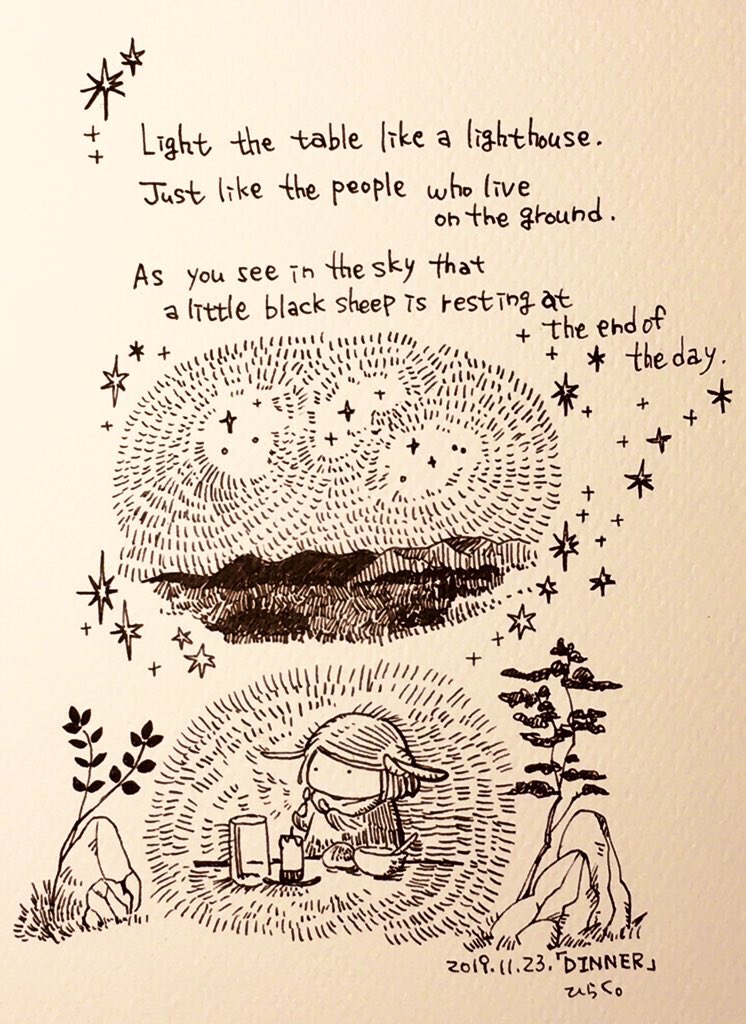 Light the table like a lighthouse.
Just like the people who live
on the ground.
As you see in the sky that
a little black sheep is resting at
the end of
the day.
2019.11.23.「DINNER」
ひらく。